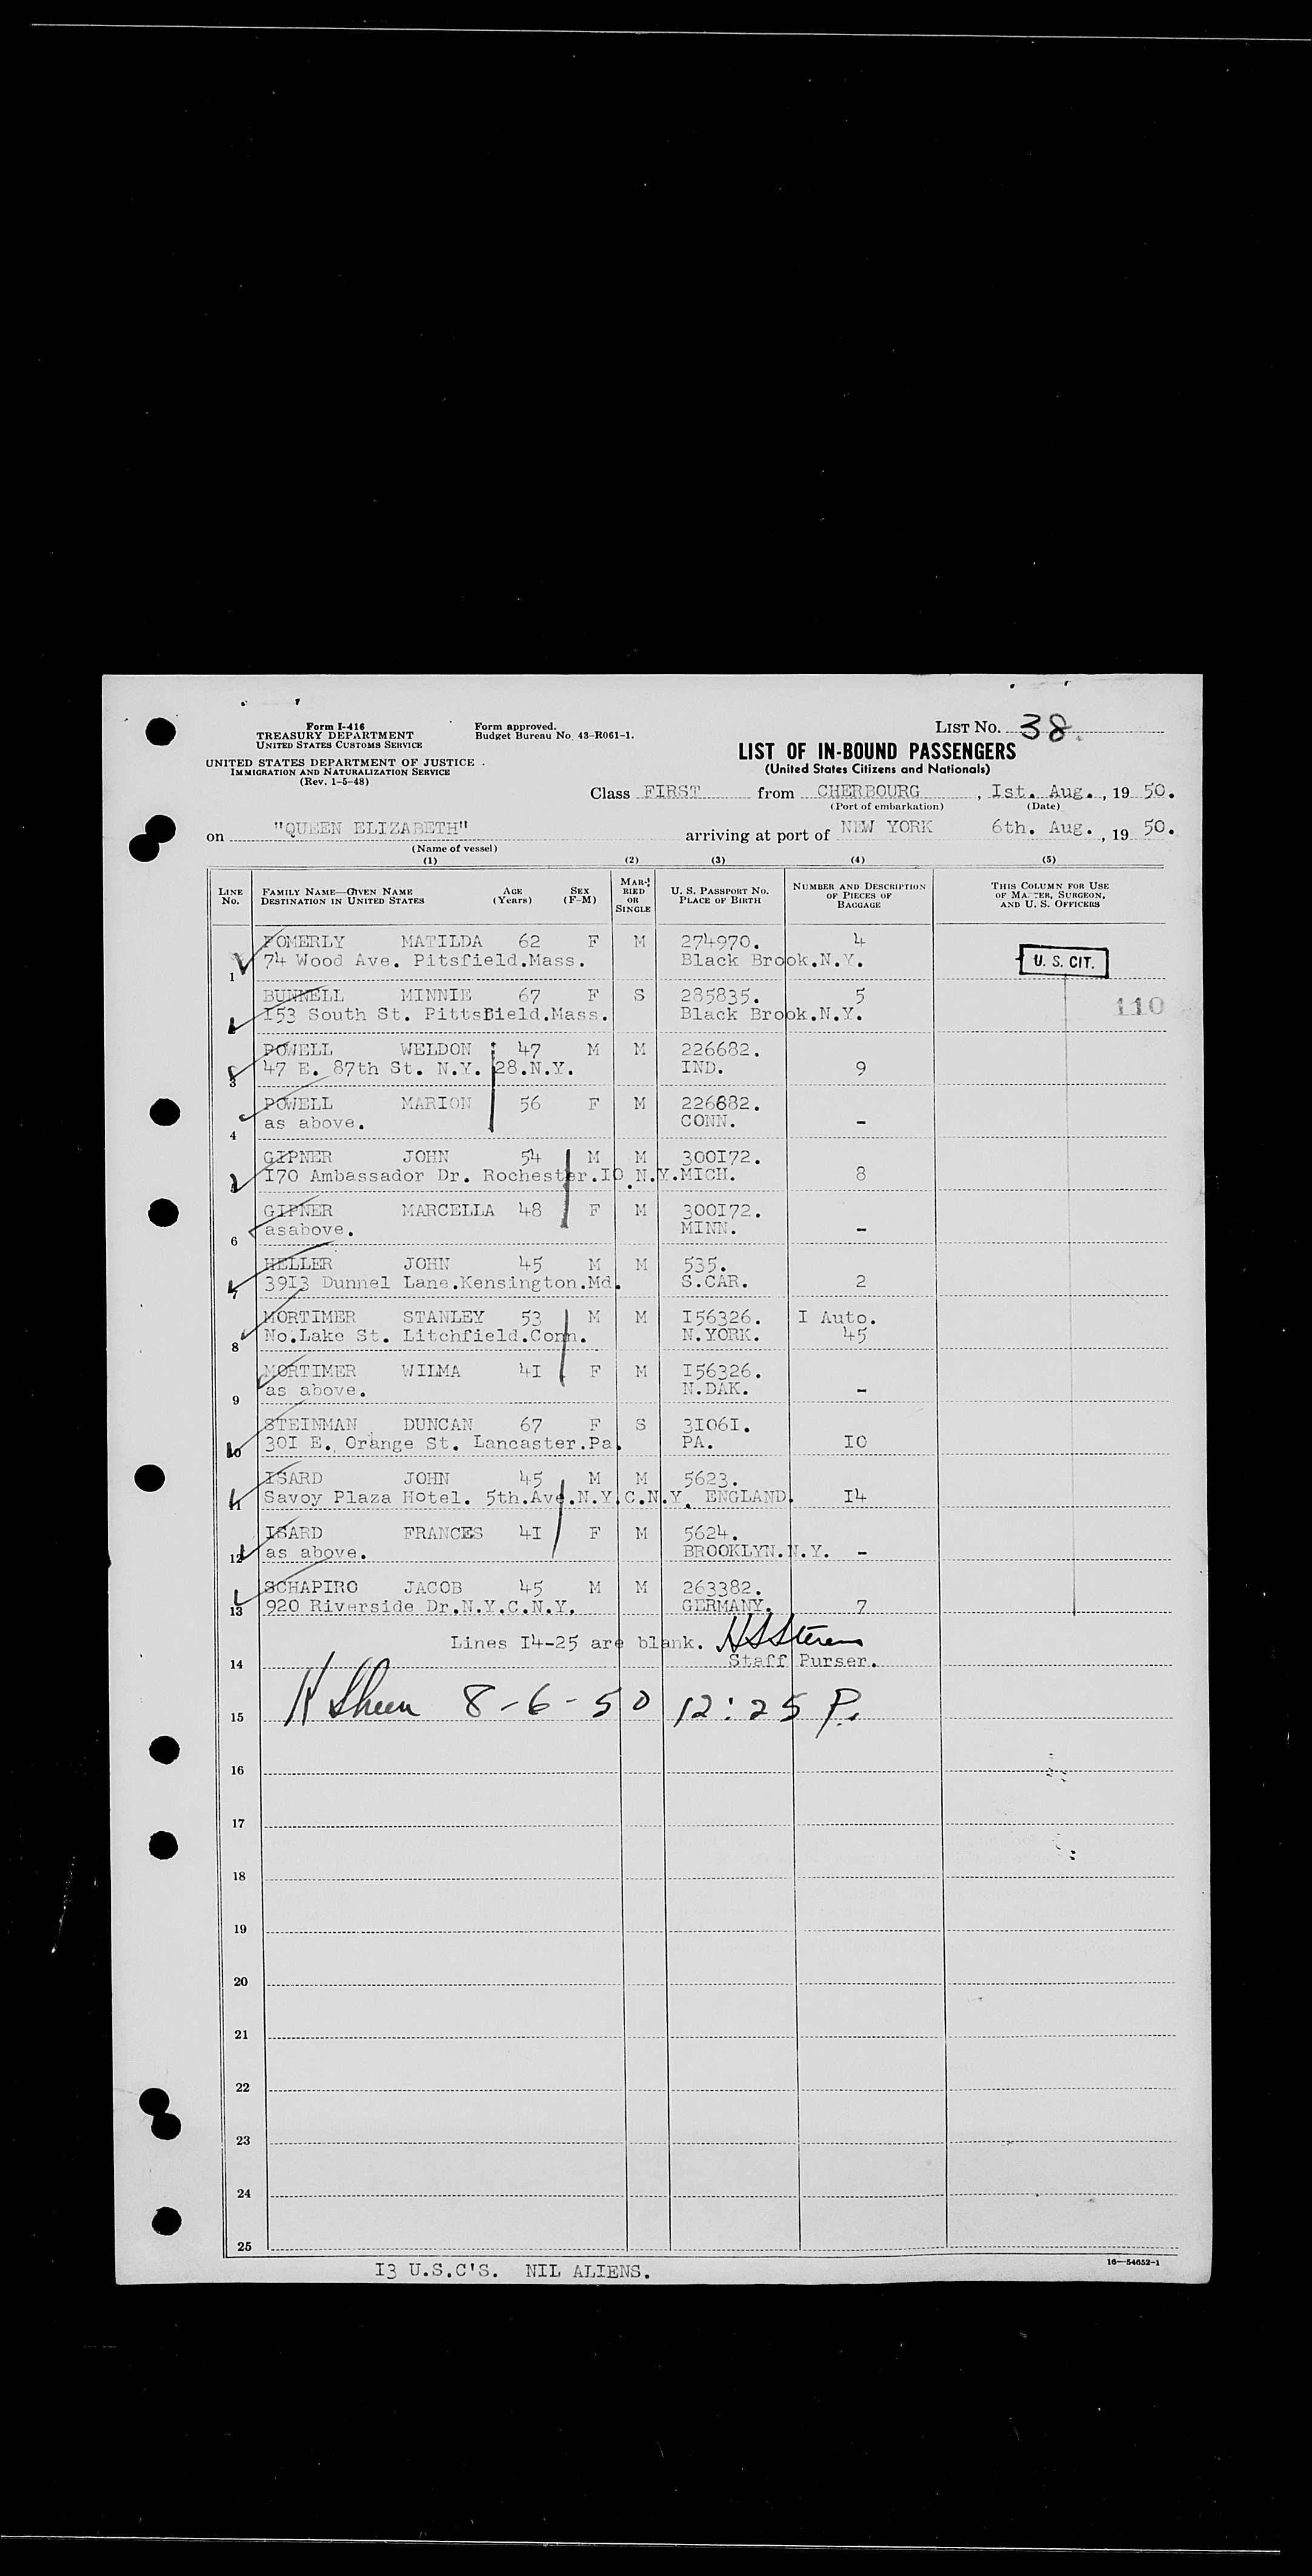 Form I-416
TREASURY DEPARTMENT
UNITED STATES CUSTOMS SERVICE
UNITED STATES DEPARTMENT OF JUSTICE
IMMIGRATION AND NATURALIZATION SERVICE
(Rev. 1-5-48)
Form approved.
Budget Bureau No. 43-R061-1.
LIST NO. 38
LIST OF IN-BOUND PASSENGERS
(United States Citizens and Nationals)
Class FIRST from CHERBOURG, Ist. Aug., 19 50.
(Port of embarkation) (Date)
on "QUEEN ELIZABETH" arriving at port of NEW YORK 6th. Aug., 19 50.
(Name of vessel)
(1) (2) (3) (4) (5)
LINE NO. FAMILY NAME—GIVEN NAME DESTINATION IN UNITED STATES AGE (Years) SEX (F-M) MARRIED OR SINGLE U. S. PASSPORT NO. PLACE OF BIRTH NUMBER AND DESCRIPTION OF PIECES OF BAGGAGE THIS COLUMN FOR USE OF MASTER, SURGEON, AND U. S. OFFICERS
POMERLY MATILDA 62 F M 274970. 4
1 74 Wood Ave. Pitsfield.Mass. Black Brook.N.Y. U. S. CIT.
BUNNELL MINNIE 67 F S 285835. 5 110
I53 South St. PittsBield.Mass. Black Brook.N.Y.
POWELL WELDON 47 M M 226682.
3 47 E. 87th St. N.Y. 28.N.Y. IND. 9
POWELL MARION 56 F M 226682.
4 as above. CONN. -
GIPNER JOHN 54 M M 300I72.
I70 Ambassador Dr. Rochester.IO.N.Y.MICH. 8
GIPNER MARCELLA 48 F M 300I72.
6 asabove. MINN. -
HELLER JOHN 45 M M 535.
7 39I3 Dunnel Lane.Kensington.Md. S.CAR. 2
MORTIMER STANLEY 53 M M I56326. I Auto.
8 No.Lake St. Litchfield.Conn. N.YORK. 45
MORTIMER WILMA 4I F M I56326.
9 as above. N.DAK. -
STEINMAN DUNCAN 67 F S 3I06I.
10 30I E. Orange St. Lancaster.Pa. PA. IO
ISARD JOHN 45 M M 5623.
11 Savoy Plaza Hotel. 5th.Ave.N.Y.C.N.Y. ENGLAND. I4
ISARD FRANCES 4I F M 5624.
12 as above. BROOKLYN.N.Y. -
SCHAPIRO JACOB 45 M M 263382.
13 920 Riverside Dr.N.Y.C.N.Y. GERMANY. 7
Lines I4-25 are blank.
14 Staff Purser.
15 8-6-50 12:25 P.
16
17
18
19
20
21
22
23
24
25
I3 U.S.C'S. NIL ALIENS.
16—54652-1